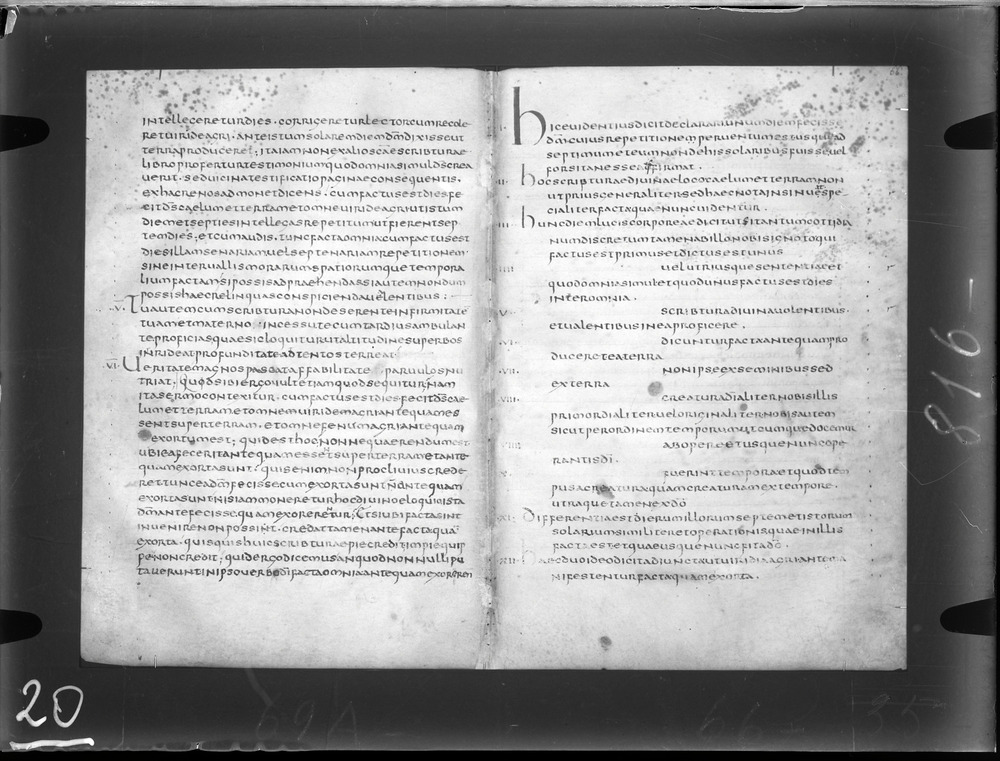 intellegereturdies · corrigereturlectorcumrecole
returideagri · anteistumsolaremdiemdm̄dixisseut
terraproduceret ; itaiamnonexalioscāescribturae
libroproferturtestimoniumquodomniasimulds̄crea
uerit · seduicinatestificatiopaginaeconsequentis ·
exhacrenosadmonetdicens · cumfactusestdiesfe
citds̄caelumetterrametomneuirideagriutistum
diemetseptiesintellegasrepetitumutfierentsep
temdies ; etcumaudis · tuncfactaomniacumfactusest
diesillamsenariamuelseptenariamrepetitionem
sineinteruallismorarumspatiorumquetempora
liumfactamsipossisadpraehendassiautemnondum
possishaecrelinquasconspiciendaualentibus :
·V· Tuautemcumscribturanondeserenteinfirmitatē
tuametmaterno incessutecumtardiusambulan
teproficiasquaesicloquiturutaltitudinesuperbos
inrideatprofunditateadtentosterreat
·VI· Ueritatemagnospascataffabilitate paruulosnu
triat · quodsibiergouultetiamquodsequiturnam
itasermocontexitur · cumfactusestdiesfecitds̄cae
lumetterrametomneuiridemagriantequamesse
sentsuperterram · etomnefenumagriantequam
exortumest ; quidesthocnonnequaerendumest
ubieafeceritantequamessentsuperterrametante
quamexortasunt · quisenimnonprocliuiuscrede
rettunceadm̄fecissecumexortasuntn̄antequam
exortasuntnisiammonereturhocdiuinoeloquioista
dm̄antefecissequamexorerentur ; Etsiubifactasint
inuenirenonpossint · credattamenantefactaquā
exorta · quisquishuicscribturaepiecreditimpiequip
penoncredit ; quidergodicemusanquodnonnulliputa
taueruntinipsouerbodifactaomniaantequamexorerent
·I· Hiceuidentiusdicitdeclarariunumdiemfecisse
dm̄cuiusrepetitionemperuentumestusquead
septimumeteumnondehissolaribusfuisseuel
forsitanesseaffirmat ·
·II· Hocscribturaediuinaelococaelumetterramnon
utpriusgeneralitersedhaecnotainsinuatspe
cialiterfactaquaenuncuidentur ·
·III· Hunediemluciscorporeaedicitutsitantumcotidia
numdiscretumtamenabillonobisignotoqui
factusestprimusetdictusestunus
·IIII· uelutriusquesententiaeet
quodomniasimuletquodunusfactusestdies
interomnia ·
·V· scribturadiuinauolentibus
etualentibusineaproficere ·
·VI· dicunturfactaantequampro
duceretea terra
·VII· nonipseexseminibussed
exterra
·VIII· creaturadialiternobisillis
primordialiteruel originaliternobisautem
sicutperordinemtemporumutcumquedocemur
·VIIII· aboperceetusquenuncope
rantisdi ·
·X· fuerinttemporaetquodtem
pusacreaturaquamcreaturamextempore ·
utraquetamenexdo
·XI· Differentiaestdierumillorumseptemetistorum
solariumsimiliteretoperationisquaeinillis
factaestetquaeusquenuncfitado ·
·XII· Haecduoideodicitadiunctautuiridiaagriantema
nifestenturfactaquamexorta ·
20
816-